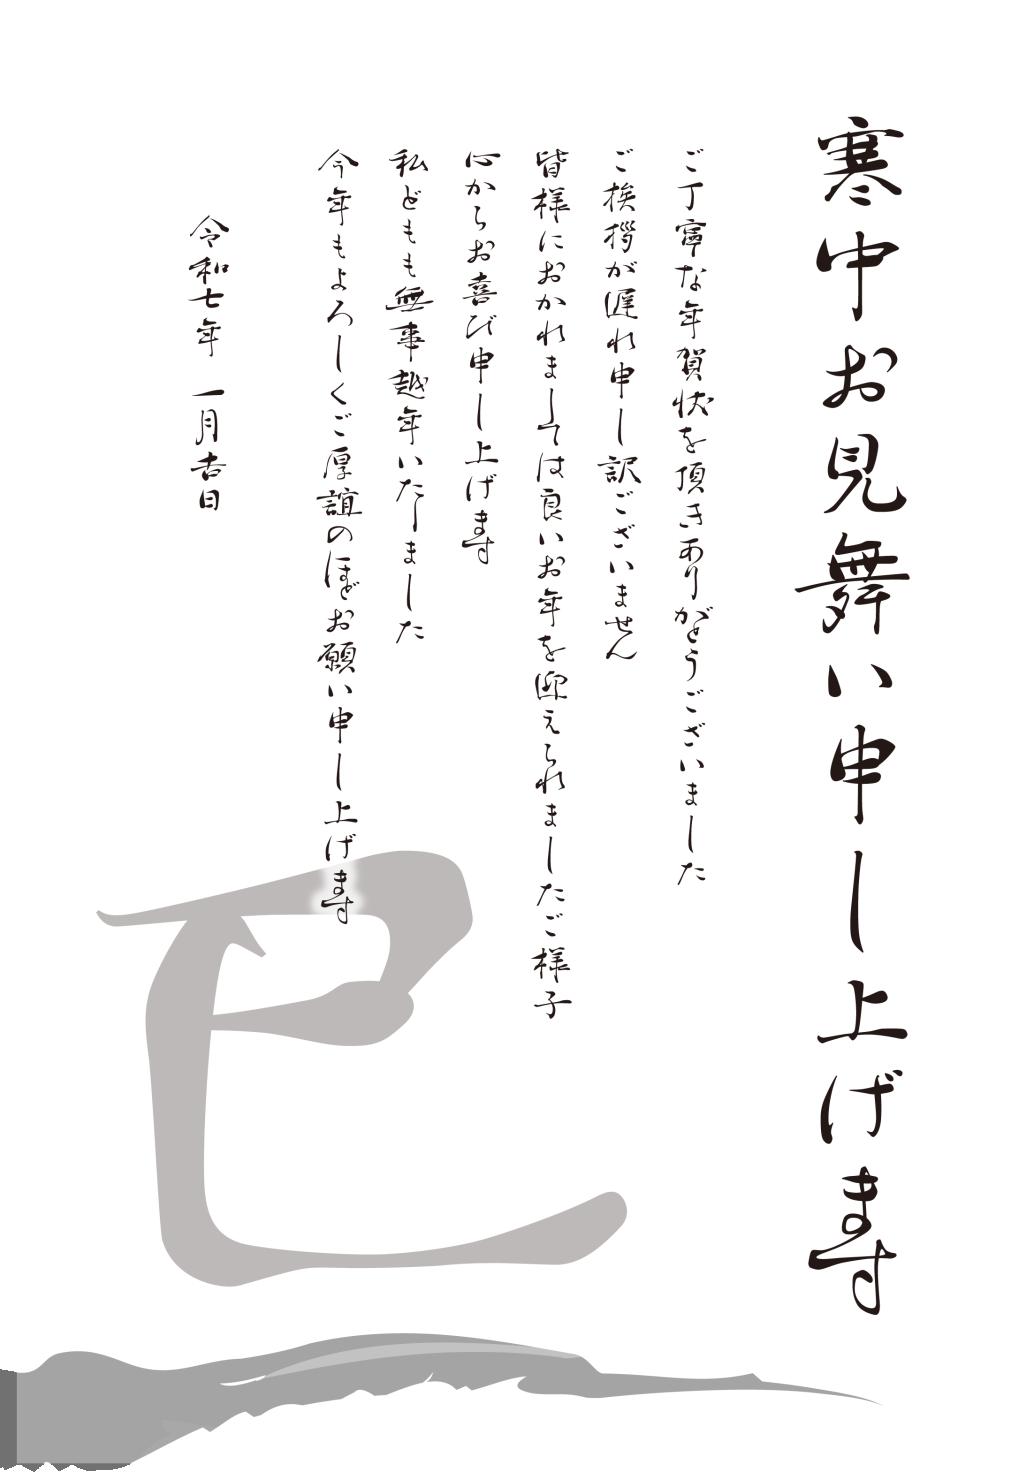 寒中お見舞い申し上げます
ご丁寧な年賀状を頂きありがとうございました
ご挨拶が遅れ申し訳ございません
皆様におかれましては良いお年を迎えられましたご様子
心からお喜び申し上げます
私どもも無事越年いたしました
今年もよろしくご厚誼のほどお願い申し上げます
令和七年 一月吉日
巳